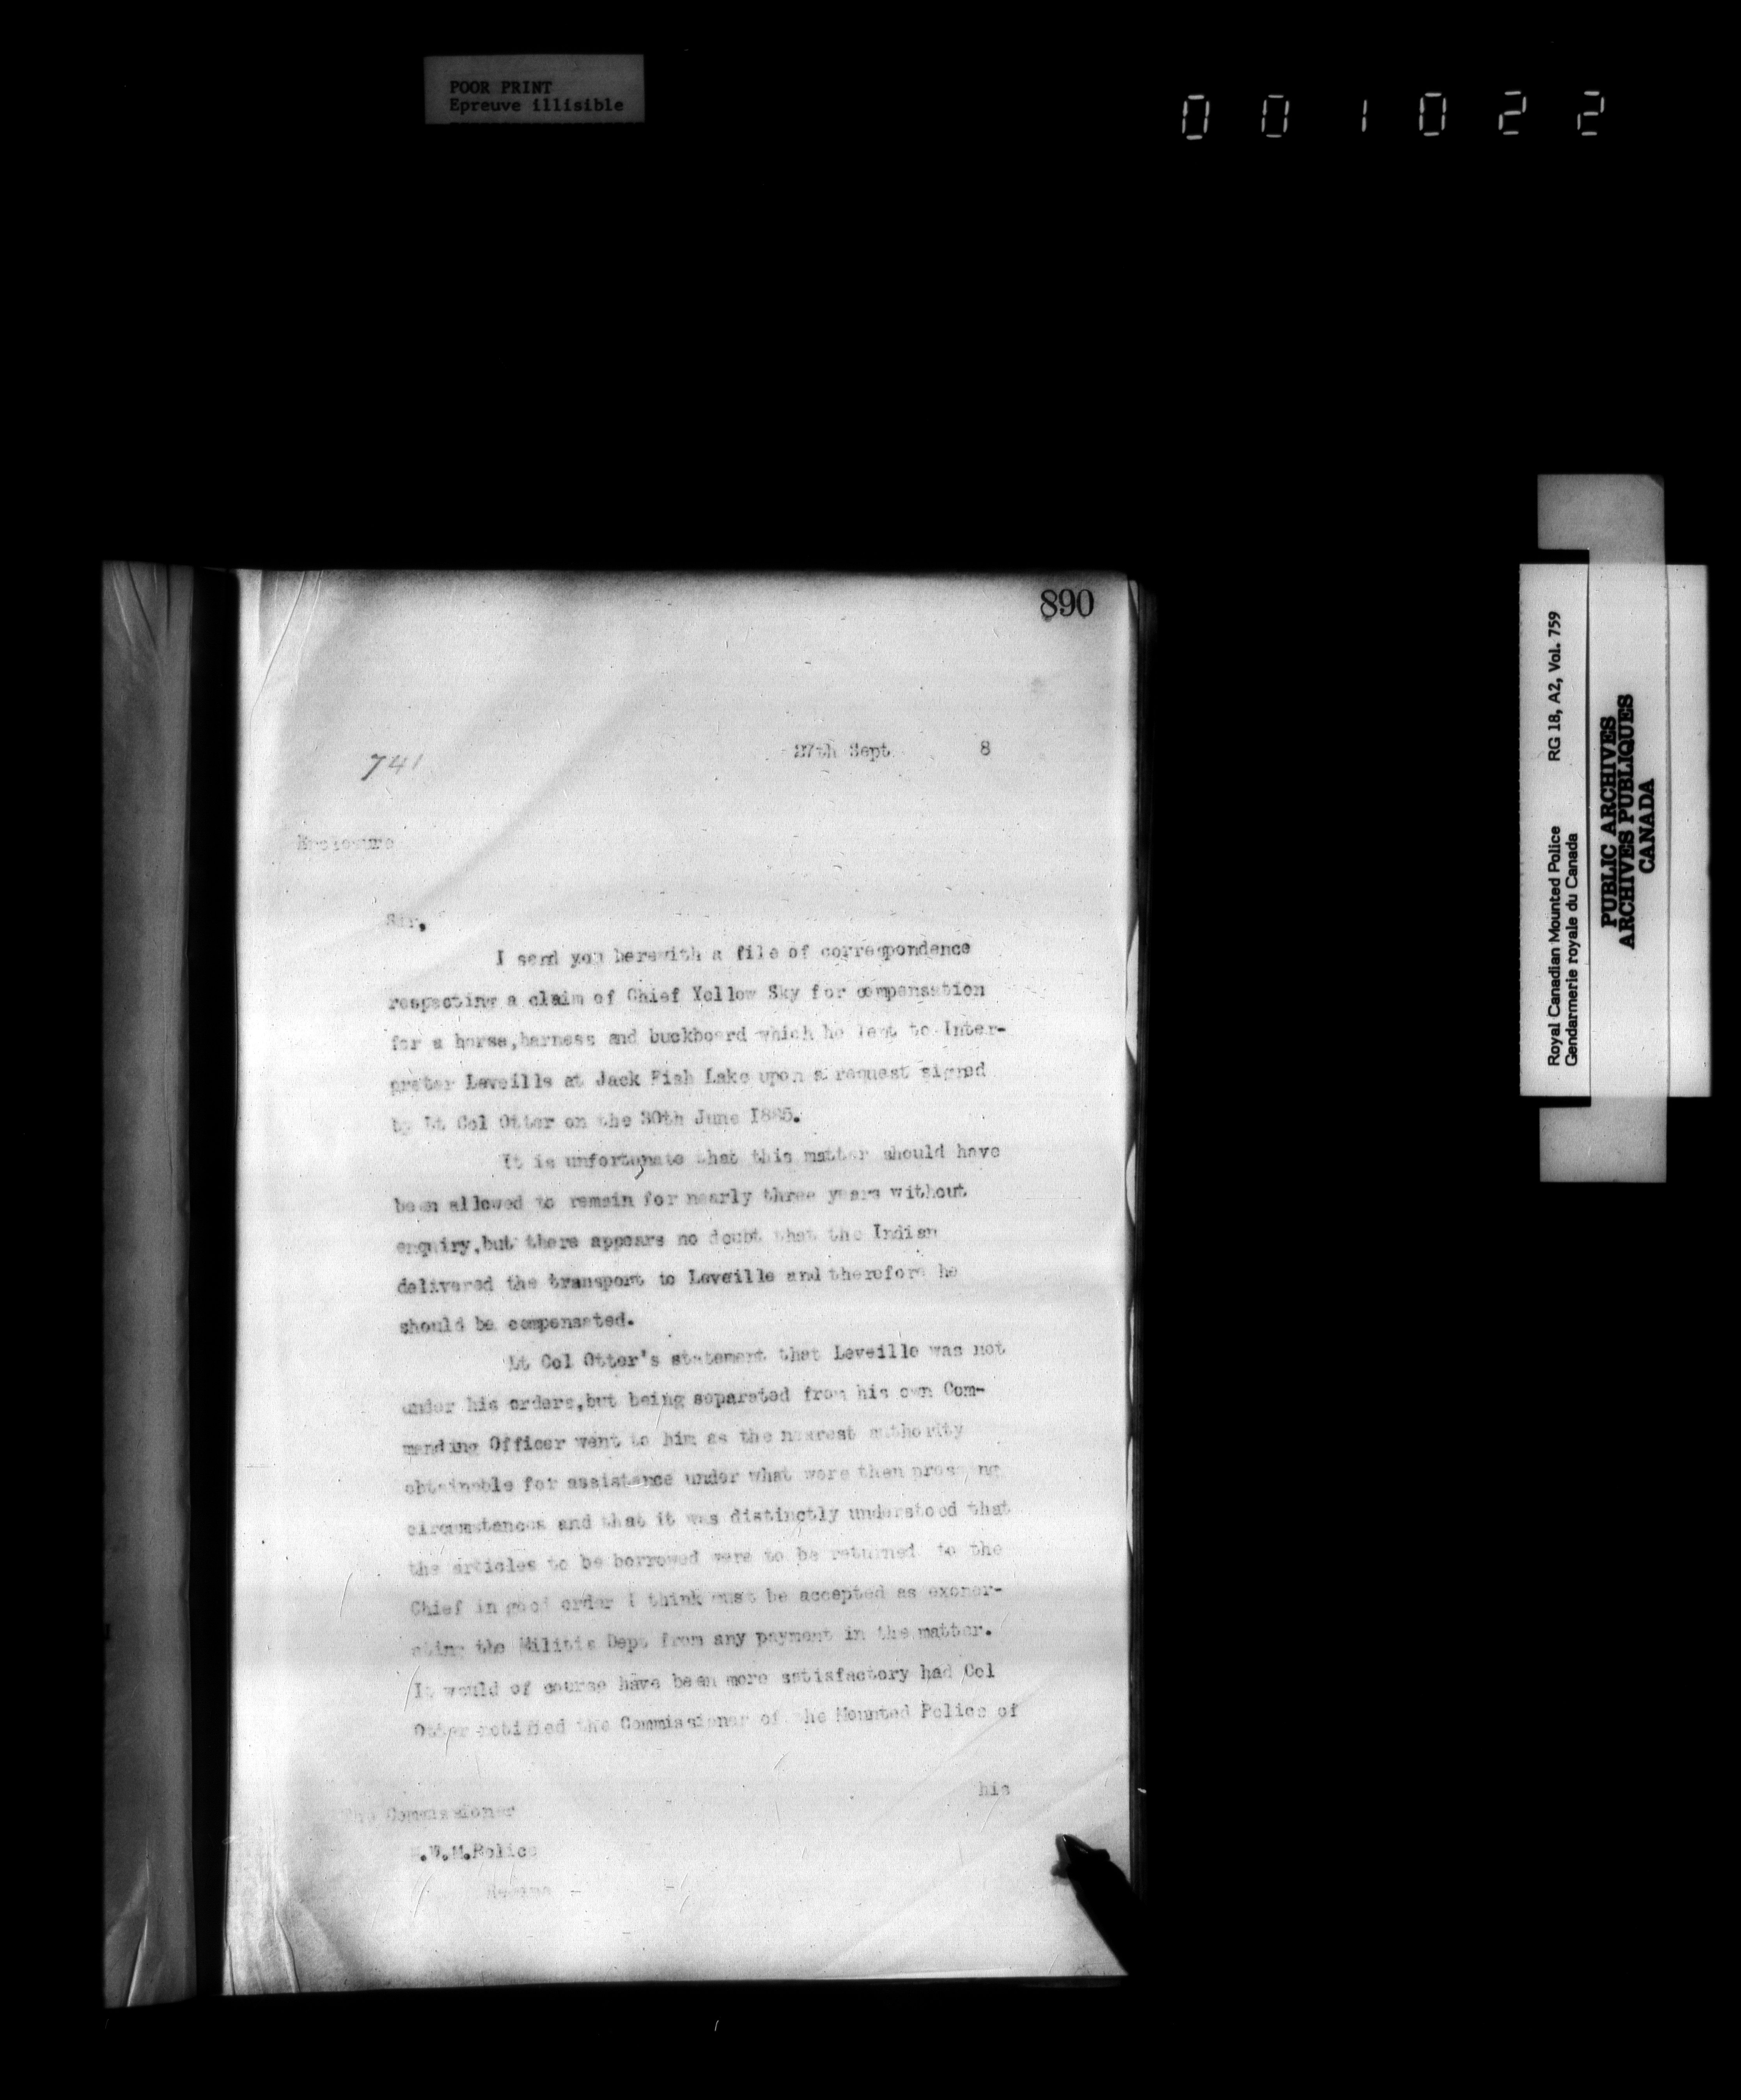 POOR PRINT
Epreuve illisible
001022
890
741
27th Sept 8
Enclosure
Sir,
I send you herewith a file of correspondence
respecting a claim of Chief Yellow Sky for compensation
for a horse,harness and buckboard which he lent to Inter-
preter Leveille at Jack Fish Lake upon a request signed
by Lt Col Otter on the 30th June 1885.
It is unfortunate that this matter should have
been allowed to remain for nearly three years without
enquiry,but there appears no doubt that the Indian
delivered the transport to Leveille and therefore he
should be compensated.
Lt Col Otter's statement that Leveille was not
under his orders,but being separated from his own Com-
manding Officer went to him as the nearest authority
obtainable for assistance under what were then pressing
circumstances and that it was distinctly understood that
the articles to be borrowed were to be returned to the
Chief in good order I think must be accepted as exoner-
ating the Militia Dept from any payment in the matter.
It would of course have been more satisfactory had Col
Otter notified the Commissioner of the Mounted Police of
his
The Commissioner
N.W.M.Police
Regina
Royal Canadian Mounted Police RG 18, A2, Vol. 759
Gendarmerie royale du Canada
PUBLIC ARCHIVES
ARCHIVES PUBLIQUES
CANADA